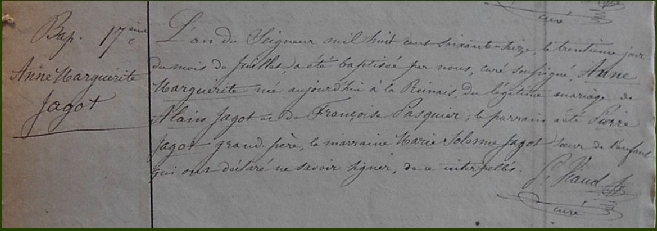 curé
Bap. 17ème
Anne Marguerite
Jagot
L'an du Seigneur mil huit cent soixante-seize, le trentième jour
du mois de Juillet, a été baptisée par nous, curé soussigné, Anne
Marguerite née aujourd'hui à la du légitime mariage de
Alain Jagot et de Françoise Pasquier; le parrain a été Pierre
Jagot grand-père, la marraine Marie Jagot sœur de l'enfant
qui ont déclaré ne savoir signer, de ce interpellés.
curé